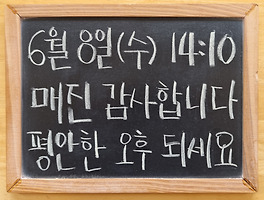 6월 8일(수) 14:10
매진 감사합니다
평안한 오후 되세요